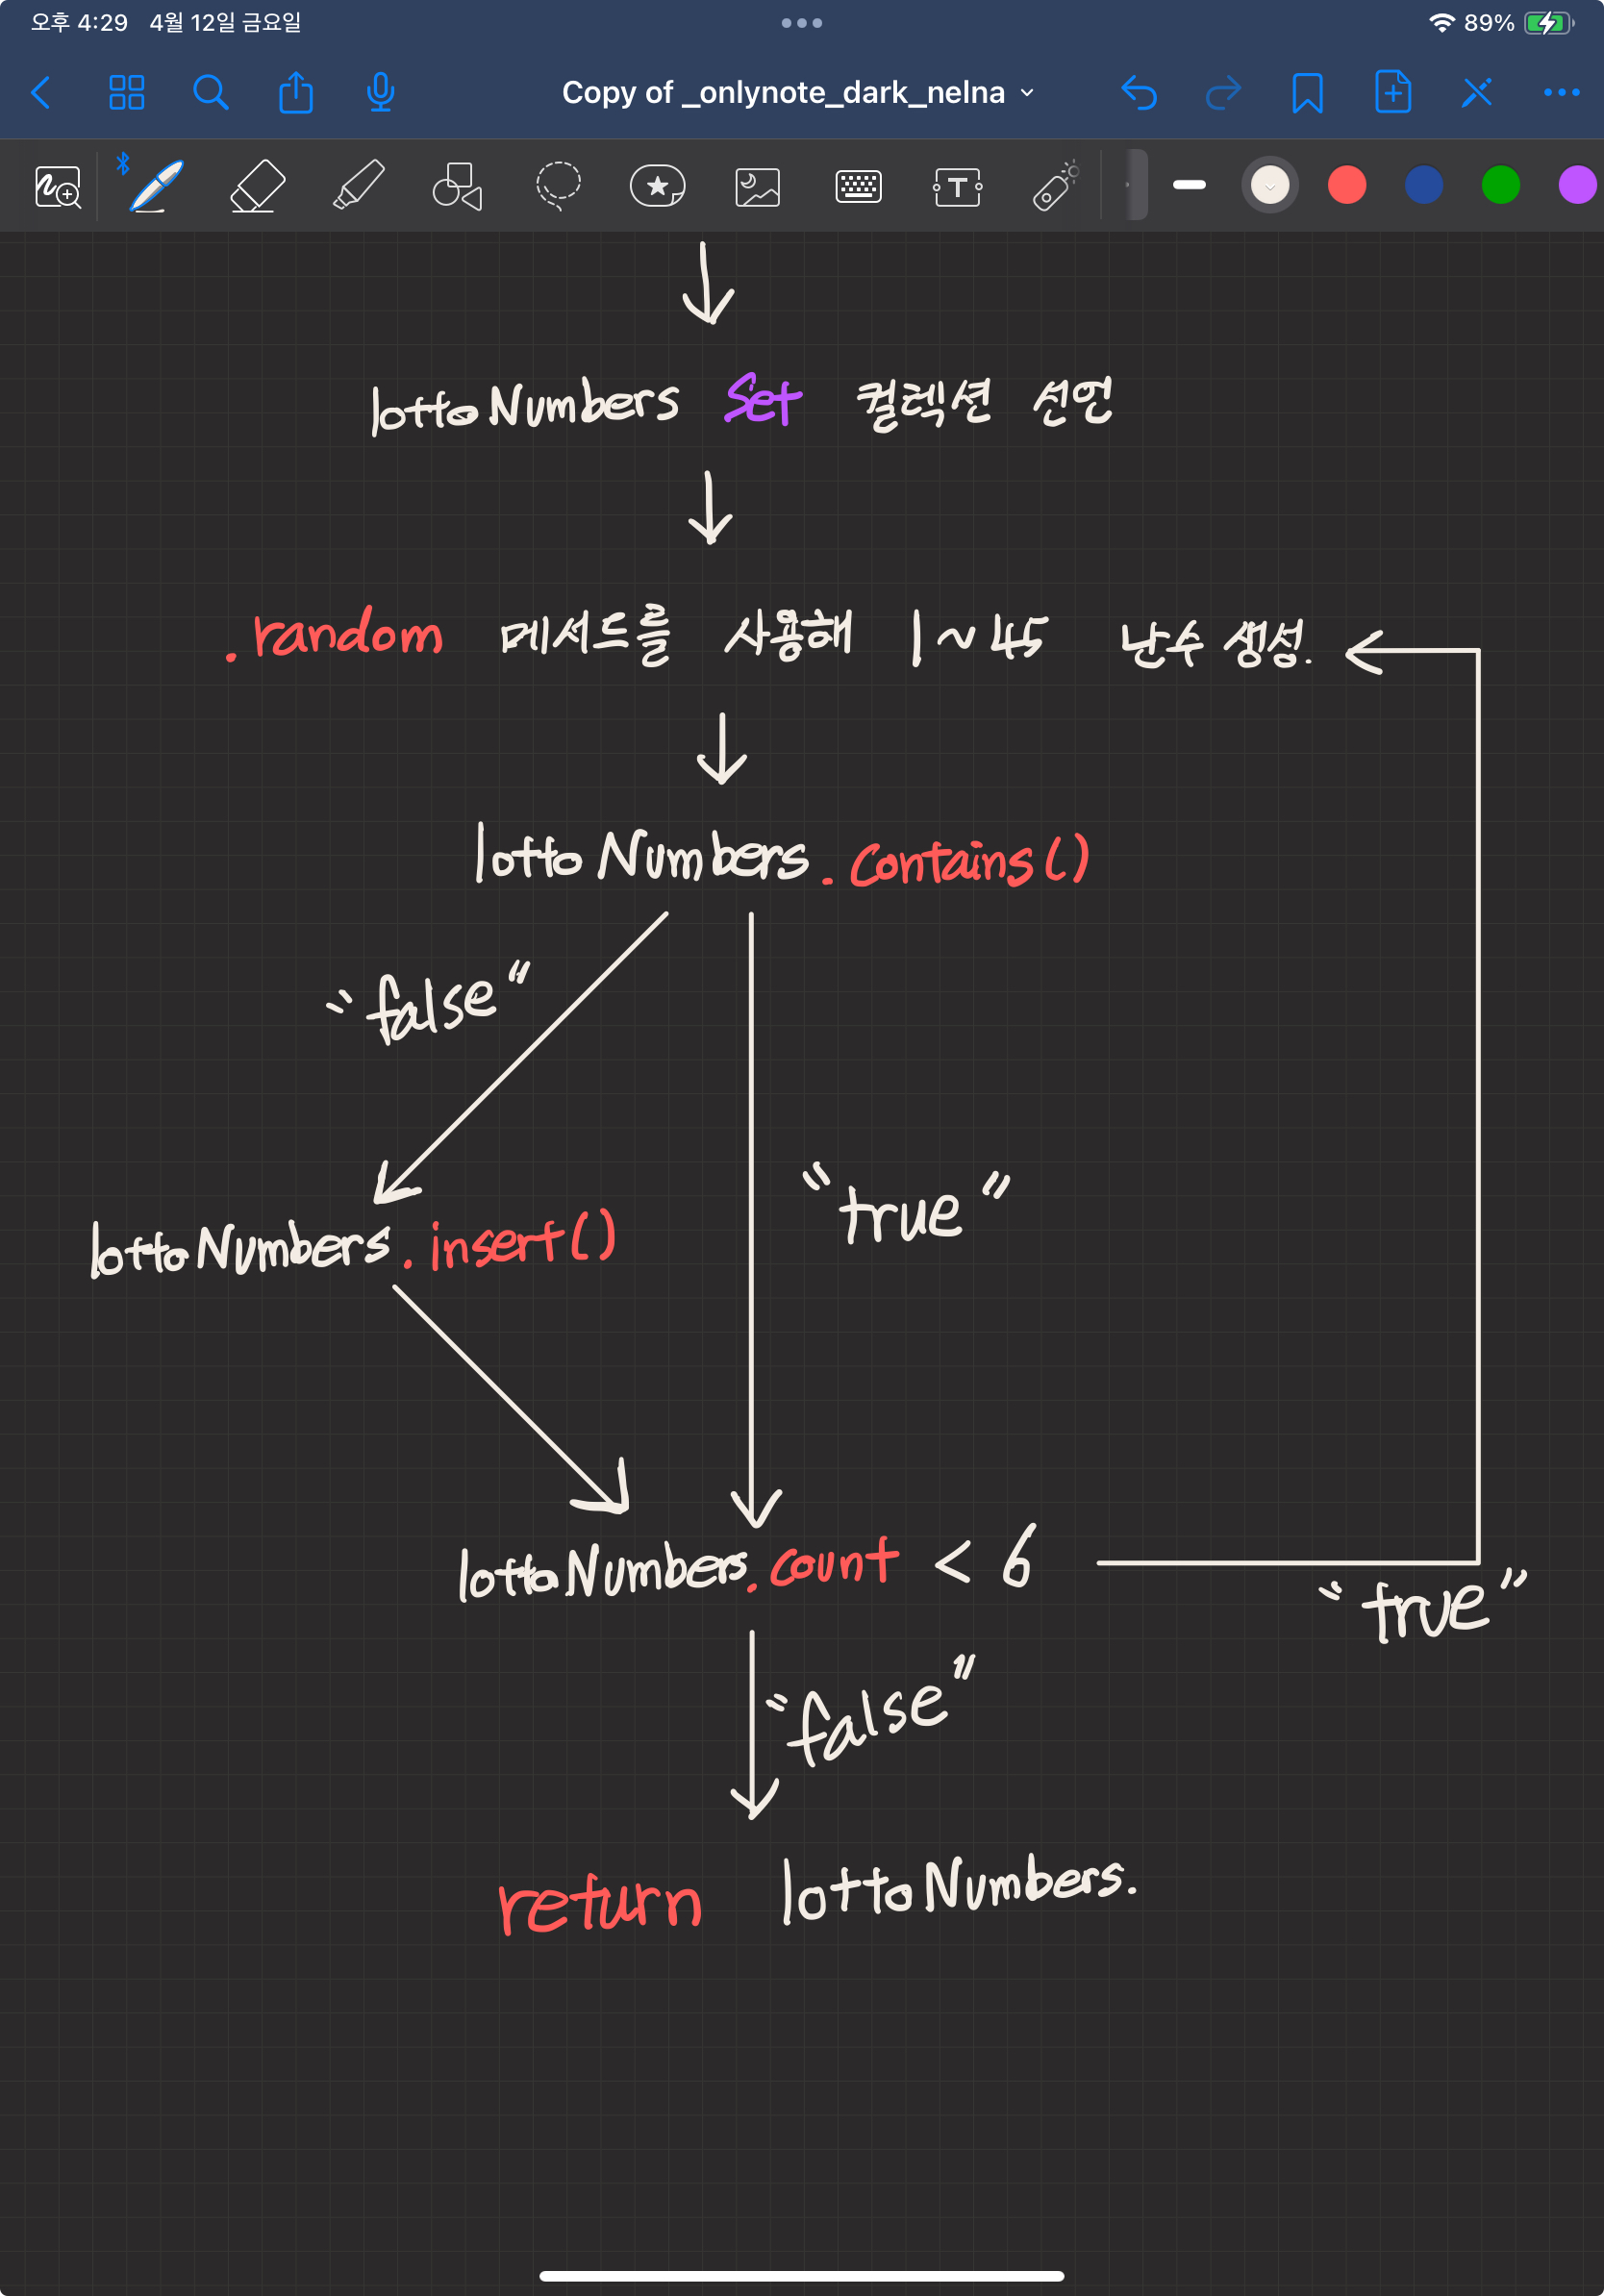 오후 4:29 4월 12일 금요일 89%
Copy of _onlynote_dark_nelna
T
lottoNumbers Set 컬렉션 선언
.random 메서드를 사용해 1~45 난수 생성.
lottoNumbers.contains()
"false"
"true"
lottoNumbers.insert()
lottoNumbers.count < 6
"true"
"false"
return lottoNumbers.